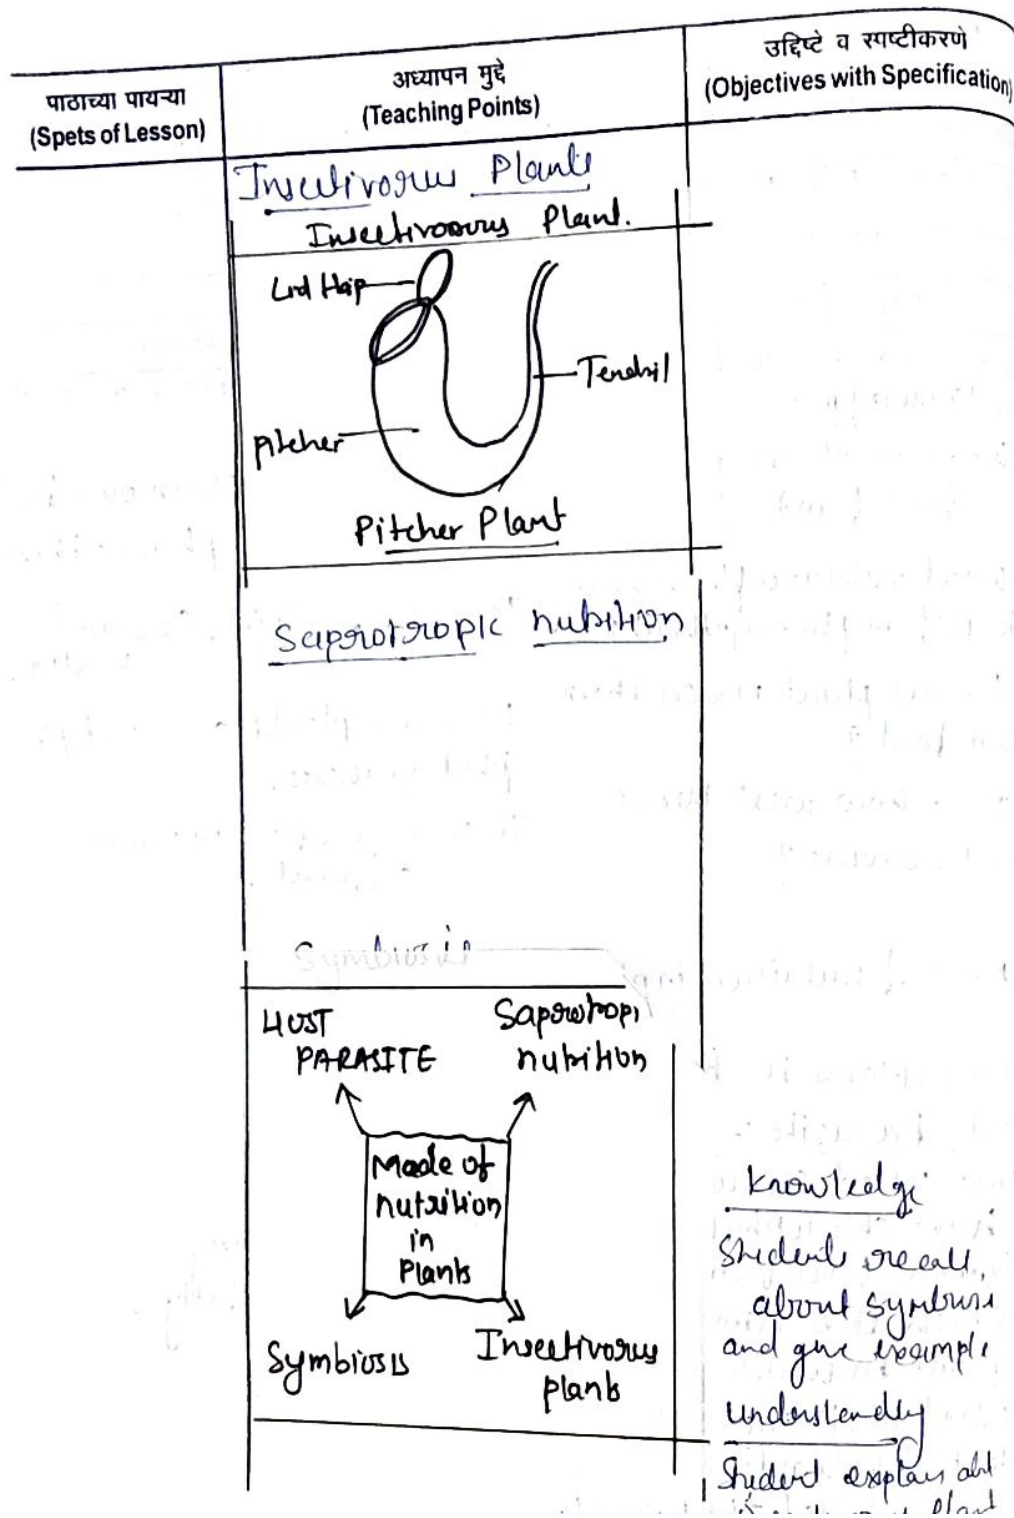 पाठाच्या पायऱ्या
(Spets of Lesson)
अध्यापन मुद्दे
(Teaching Points)
उद्दिष्टे व स्पष्टीकरणे
(Objectives with Specification)
Insectivorus Plants
Insectivorous Plant.
Lid
Tendril
Pitcher
Pitcher Plant
Saprotropic nutrition
Symbiosis
HOST
PARASITE
Saprotropi
nutrition
Made of
nutrition
in
Plants
Symbiosis
Insectivorus
plants
Knowledge
Student recall
about symbiosi
and give example
understanding
Student explain abt
Plant